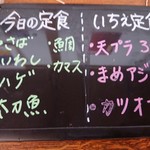 今日の定食
さば
いわし
ハゲ
太刀魚
・鯛
・カマス
いちえ定食
・天プラ3
・まめアジ
・カツオ